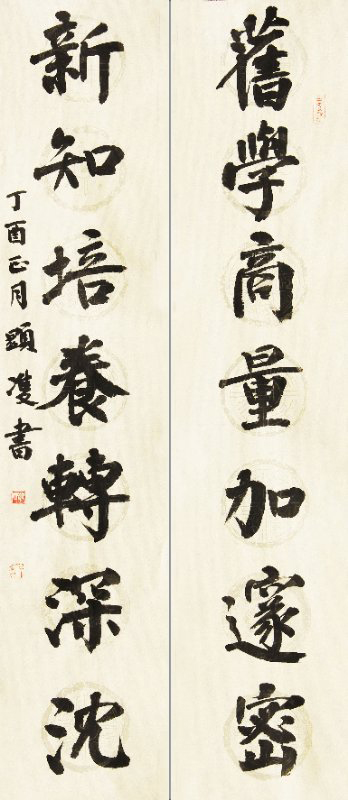 舊學商量加邃密
新知培養轉深沈
丁酉正月書